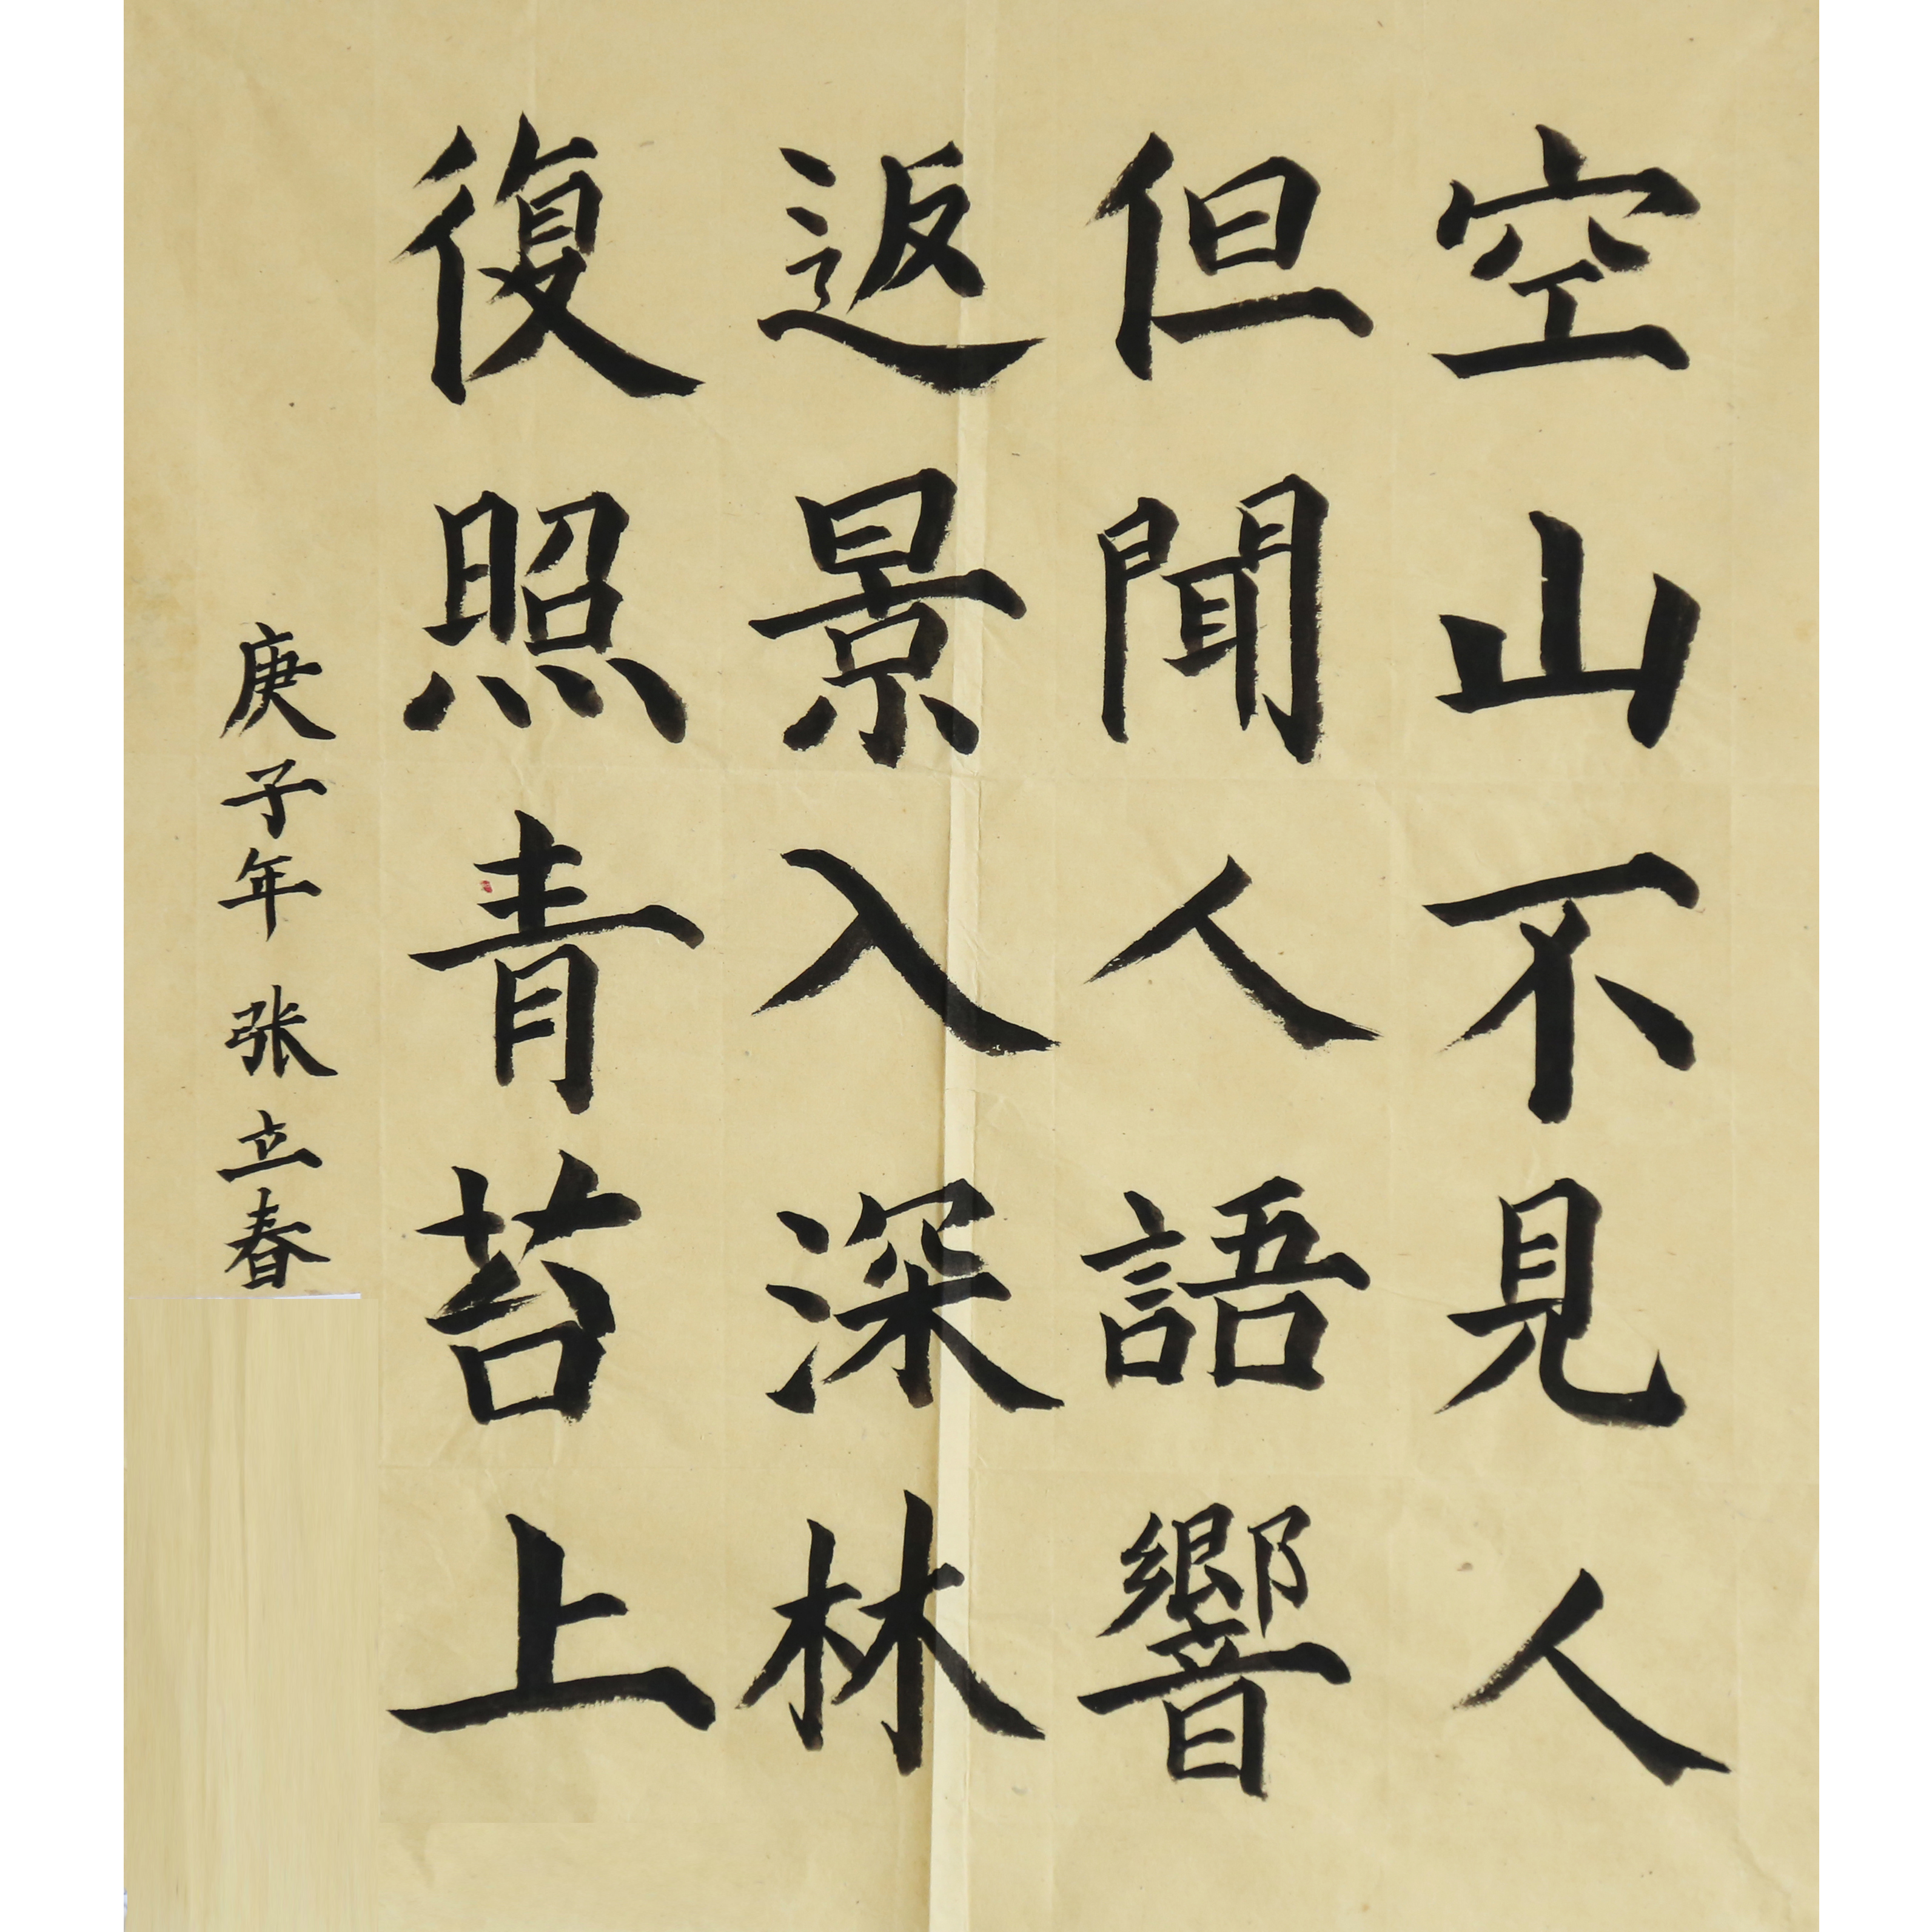 空山不見人
但聞人語響
返景入深林
復照青苔上
庚子年 张立春